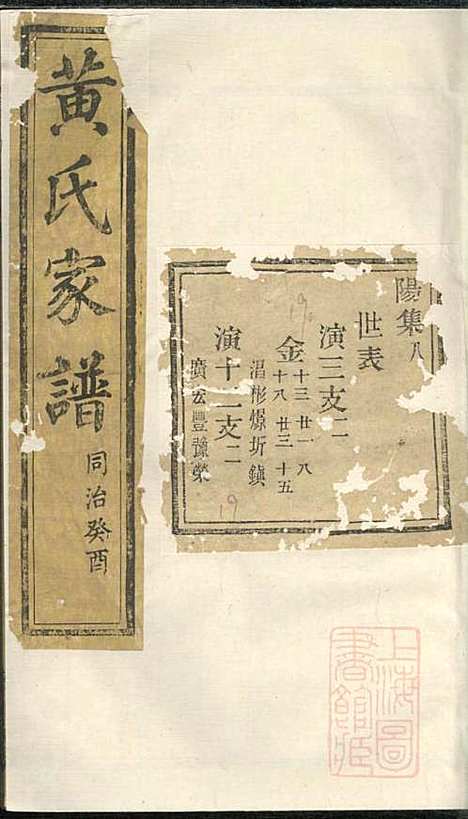 黄氏家譜
同治癸酉
陽集八
世表
演三支二
金
十三 廿一 八
十八 廿三 十五
滔彬爆圻鎮
演十二支二
廣宏豐豫榮
19
19
上海圖
書館藏